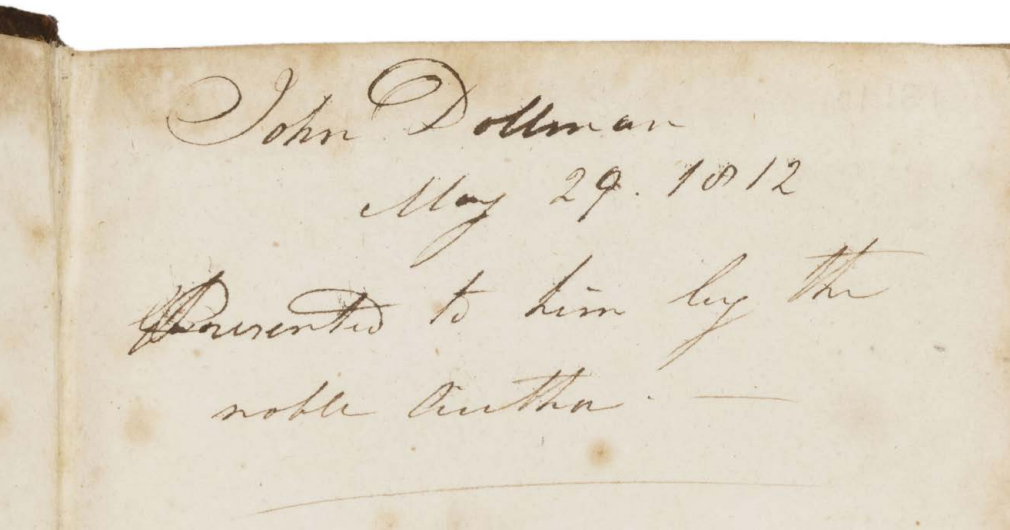 John Dollman
May 29. 1812
Presented to him by the
noble Author. —